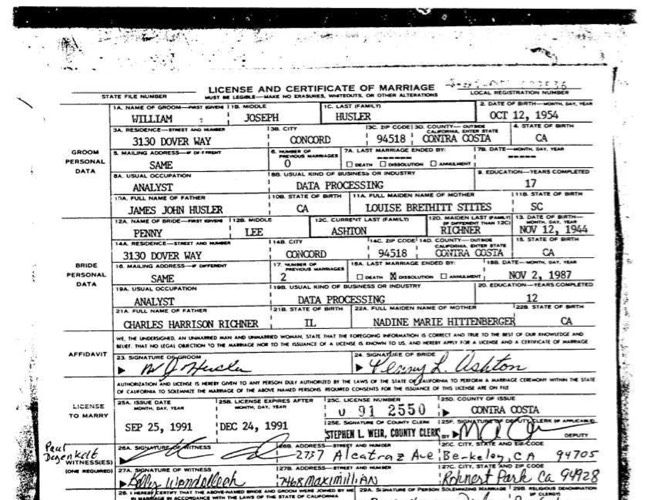 LICENSE AND CERTIFICATE OF MARRIAGE
STATE FILE NUMBER MUST BE LEGIBLE—MAKE NO ERASURES, WHITEOUTS, OR OTHER ALTERATIONS LOCAL REGISTRATION NUMBER
1A. NAME OF GROOM—FIRST (GIVEN) 1B. MIDDLE 1C. LAST (FAMILY) 2. DATE OF BIRTH—MONTH, DAY, YEAR
WILLIAM JOSEPH HUSLER OCT 12, 1954
3A. RESIDENCE—STREET AND NUMBER 3B. CITY 3C. ZIP CODE 3D. COUNTY—OUTSIDE CALIFORNIA, ENTER STATE 4. STATE OF BIRTH
3130 DOVER WAY CONCORD 94518 CONTRA COSTA CA
GROOM PERSONAL DATA
5. MAILING ADDRESS—IF DIFFERENT 6. NUMBER OF PREVIOUS MARRIAGES 7A. LAST MARRIAGE ENDED BY: 7B. DATE—MONTH, DAY, YEAR
SAME 0 DEATH DISSOLUTION ANNULMENT -----
8A. USUAL OCCUPATION 8B. USUAL KIND OF BUSINESS OR INDUSTRY 9. EDUCATION—YEARS COMPLETED
ANALYST DATA PROCESSING 17
10A. FULL NAME OF FATHER 10B. STATE OF BIRTH 11A. FULL MAIDEN NAME OF MOTHER 11B. STATE OF BIRTH
JAMES JOHN HUSLER CA LOUISE BRETHITT STITES SC
12A. NAME OF BRIDE—FIRST (GIVEN) 12B. MIDDLE 12C. CURRENT LAST (FAMILY) 12D. MAIDEN LAST (FAMILY) (IF DIFFERENT THAN 12C) 13. DATE OF BIRTH—MONTH, DAY, YEAR
PENNY LEE ASHTON RICHNER NOV 12, 1944
14A. RESIDENCE—STREET AND NUMBER 14B. CITY 14C. ZIP CODE 14D. COUNTY—OUTSIDE CALIFORNIA, ENTER STATE 15. STATE OF BIRTH
3130 DOVER WAY CONCORD 94518 CONTRA COSTA CA
BRIDE PERSONAL DATA
16. MAILING ADDRESS—IF DIFFERENT 17. NUMBER OF PREVIOUS MARRIAGES 18A. LAST MARRIAGE ENDED BY: 18B. DATE—MONTH, DAY, YEAR
SAME 2 DEATH X DISSOLUTION ANNULMENT NOV 2, 1987
19A. USUAL OCCUPATION 19B. USUAL KIND OF BUSINESS OR INDUSTRY 20. EDUCATION—YEARS COMPLETED
ANALYST DATA PROCESSING 12
21A. FULL NAME OF FATHER 21B. STATE OF BIRTH 22A. FULL MAIDEN NAME OF MOTHER 22B. STATE OF BIRTH
CHARLES HARRISON RICHNER IL NADINE MARIE HITTENBERGER CA
WE, THE UNDERSIGNED, AN UNMARRIED MAN AND UNMARRIED WOMAN, STATE THAT THE FOREGOING INFORMATION IS CORRECT AND TRUE TO THE BEST OF OUR KNOWLEDGE AND
BELIEF, THAT NO LEGAL OBJECTION TO THE MARRIAGE NOR TO THE ISSUANCE OF A LICENSE IS KNOWN TO US, AND HEREBY APPLY FOR A LICENSE AND CERTIFICATE OF MARRIAGE.
AFFIDAVIT 23. SIGNATURE OF GROOM 24. SIGNATURE OF BRIDE
W J Husler Penny L. Ashton
AUTHORIZATION AND LICENSE IS HEREBY GIVEN TO ANY PERSON DULY AUTHORIZED BY THE LAWS OF THE STATE OF CALIFORNIA TO PERFORM A MARRIAGE CEREMONY WITHIN THE STATE
OF CALIFORNIA TO SOLEMNIZE THE MARRIAGE OF THE ABOVE NAMED PERSONS. REQUIRED CONSENTS FOR THE ISSUANCE OF THIS LICENSE ARE ON FILE
LICENSE TO MARRY
25A. ISSUE DATE MONTH, DAY, YEAR 25B. LICENSE EXPIRES AFTER MONTH, DAY, YEAR 25C. LICENSE NUMBER 25D. COUNTY OF ISSUE
SEP 25, 1991 DEC 24, 1991 0 91 2550 CONTRA COSTA
25E. SIGNATURE OF COUNTY CLERK 25F. SIGNATURE OF DEPUTY CLERK (IF APPLICABLE)
STEPHEN L. WEIR, COUNTY CLERK BY DEPUTY
26A. SIGNATURE OF WITNESS 26B. ADDRESS—STREET AND NUMBER 26C. CITY, STATE AND ZIP CODE
Paul 2737 Alcatraz Ave Berkeley, CA 94705
WITNESS(ES) (ONE REQUIRED)
27A. SIGNATURE OF WITNESS 27B. ADDRESS—STREET AND NUMBER 27C. CITY, STATE AND ZIP CODE
7468 Maximillian Rohnert Park Ca 94928
28. I HEREBY CERTIFY THAT THE ABOVE-NAMED BRIDE AND GROOM WERE JOINED BY ME 29A. SIGNATURE OF PERSON SOLEMNIZING MARRIAGE 29B. RELIGIOUS DENOMINATION
IN MARRIAGE IN ACCORDANCE WITH THE LAWS OF THE STATE OF CALIFORNIA